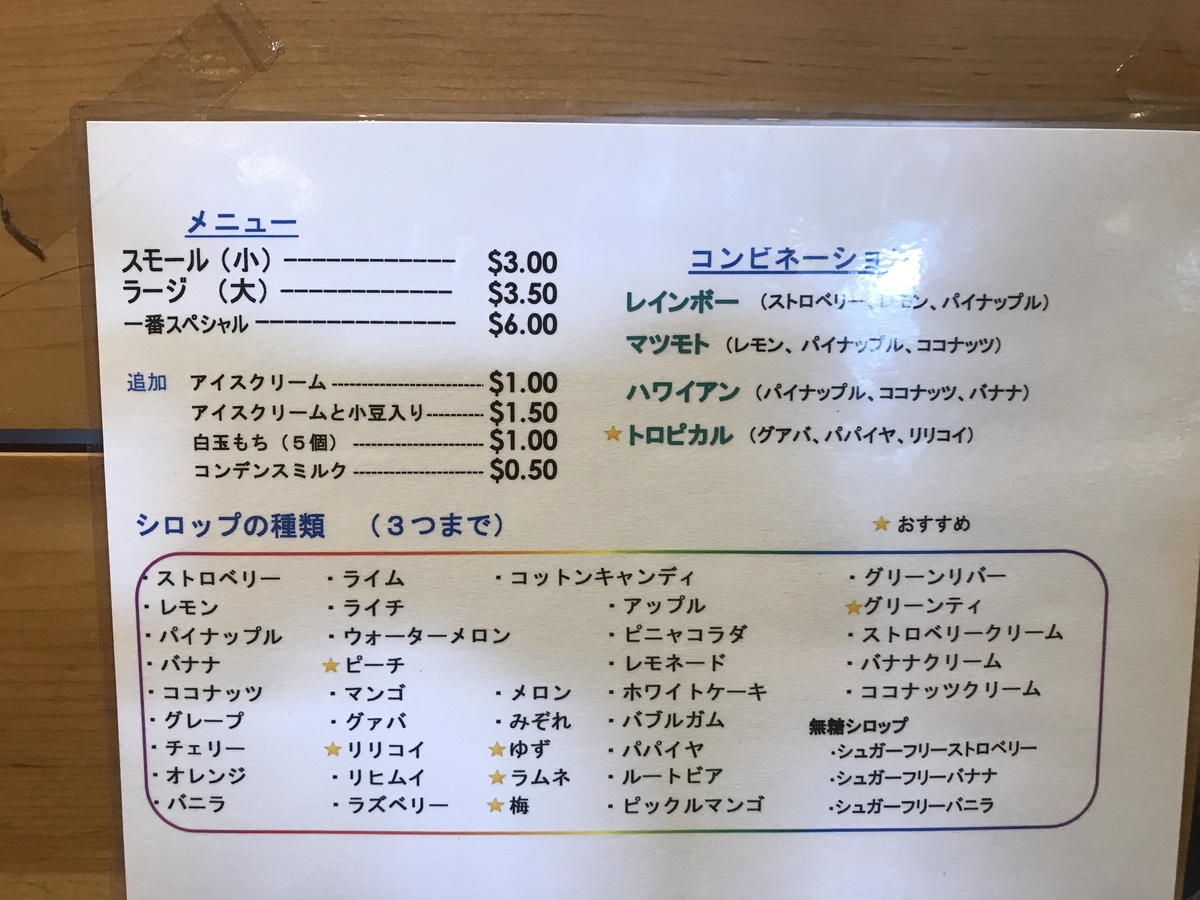 メニュー
スモール（小） ------------- $3.00
ラージ （大） ------------- $3.50
一番スペシャル --------------- $6.00
追加 アイスクリーム ------------------------- $1.00
アイスクリームと小豆入り---------- $1.50
白玉もち（５個） --------------------- $1.00
コンデンスミルク --------------------- $0.50
コンビネーション
レインボー （ストロベリー、レモン、パイナップル）
マツモト （レモン、パイナップル、ココナッツ）
ハワイアン （パイナップル、ココナッツ、バナナ）
⭐トロピカル （グアバ、パパイヤ、リリコイ）
シロップの種類 （３つまで）
⭐ おすすめ
・ストロベリー
・レモン
・パイナップル
・バナナ
・ココナッツ
・グレープ
・チェリー
・オレンジ
・バニラ
・ライム
・ライチ
・ウォーターメロン
⭐ピーチ
・マンゴ
・グァバ
⭐リリコイ
・リヒムイ
・ラズベリー
・コットンキャンディ
・メロン
・みぞれ
⭐ゆず
⭐ラムネ
⭐梅
・アップル
・ピニャコラダ
・レモネード
・ホワイトケーキ
・バブルガム
・パパイヤ
・ルートビア
・ピックルマンゴ
・グリーンリバー
⭐グリーンティ
・ストロベリークリーム
・バナナクリーム
・ココナッツクリーム
無糖シロップ
・シュガーフリーストロベリー
・シュガーフリーバナナ
・シュガーフリーバニラ